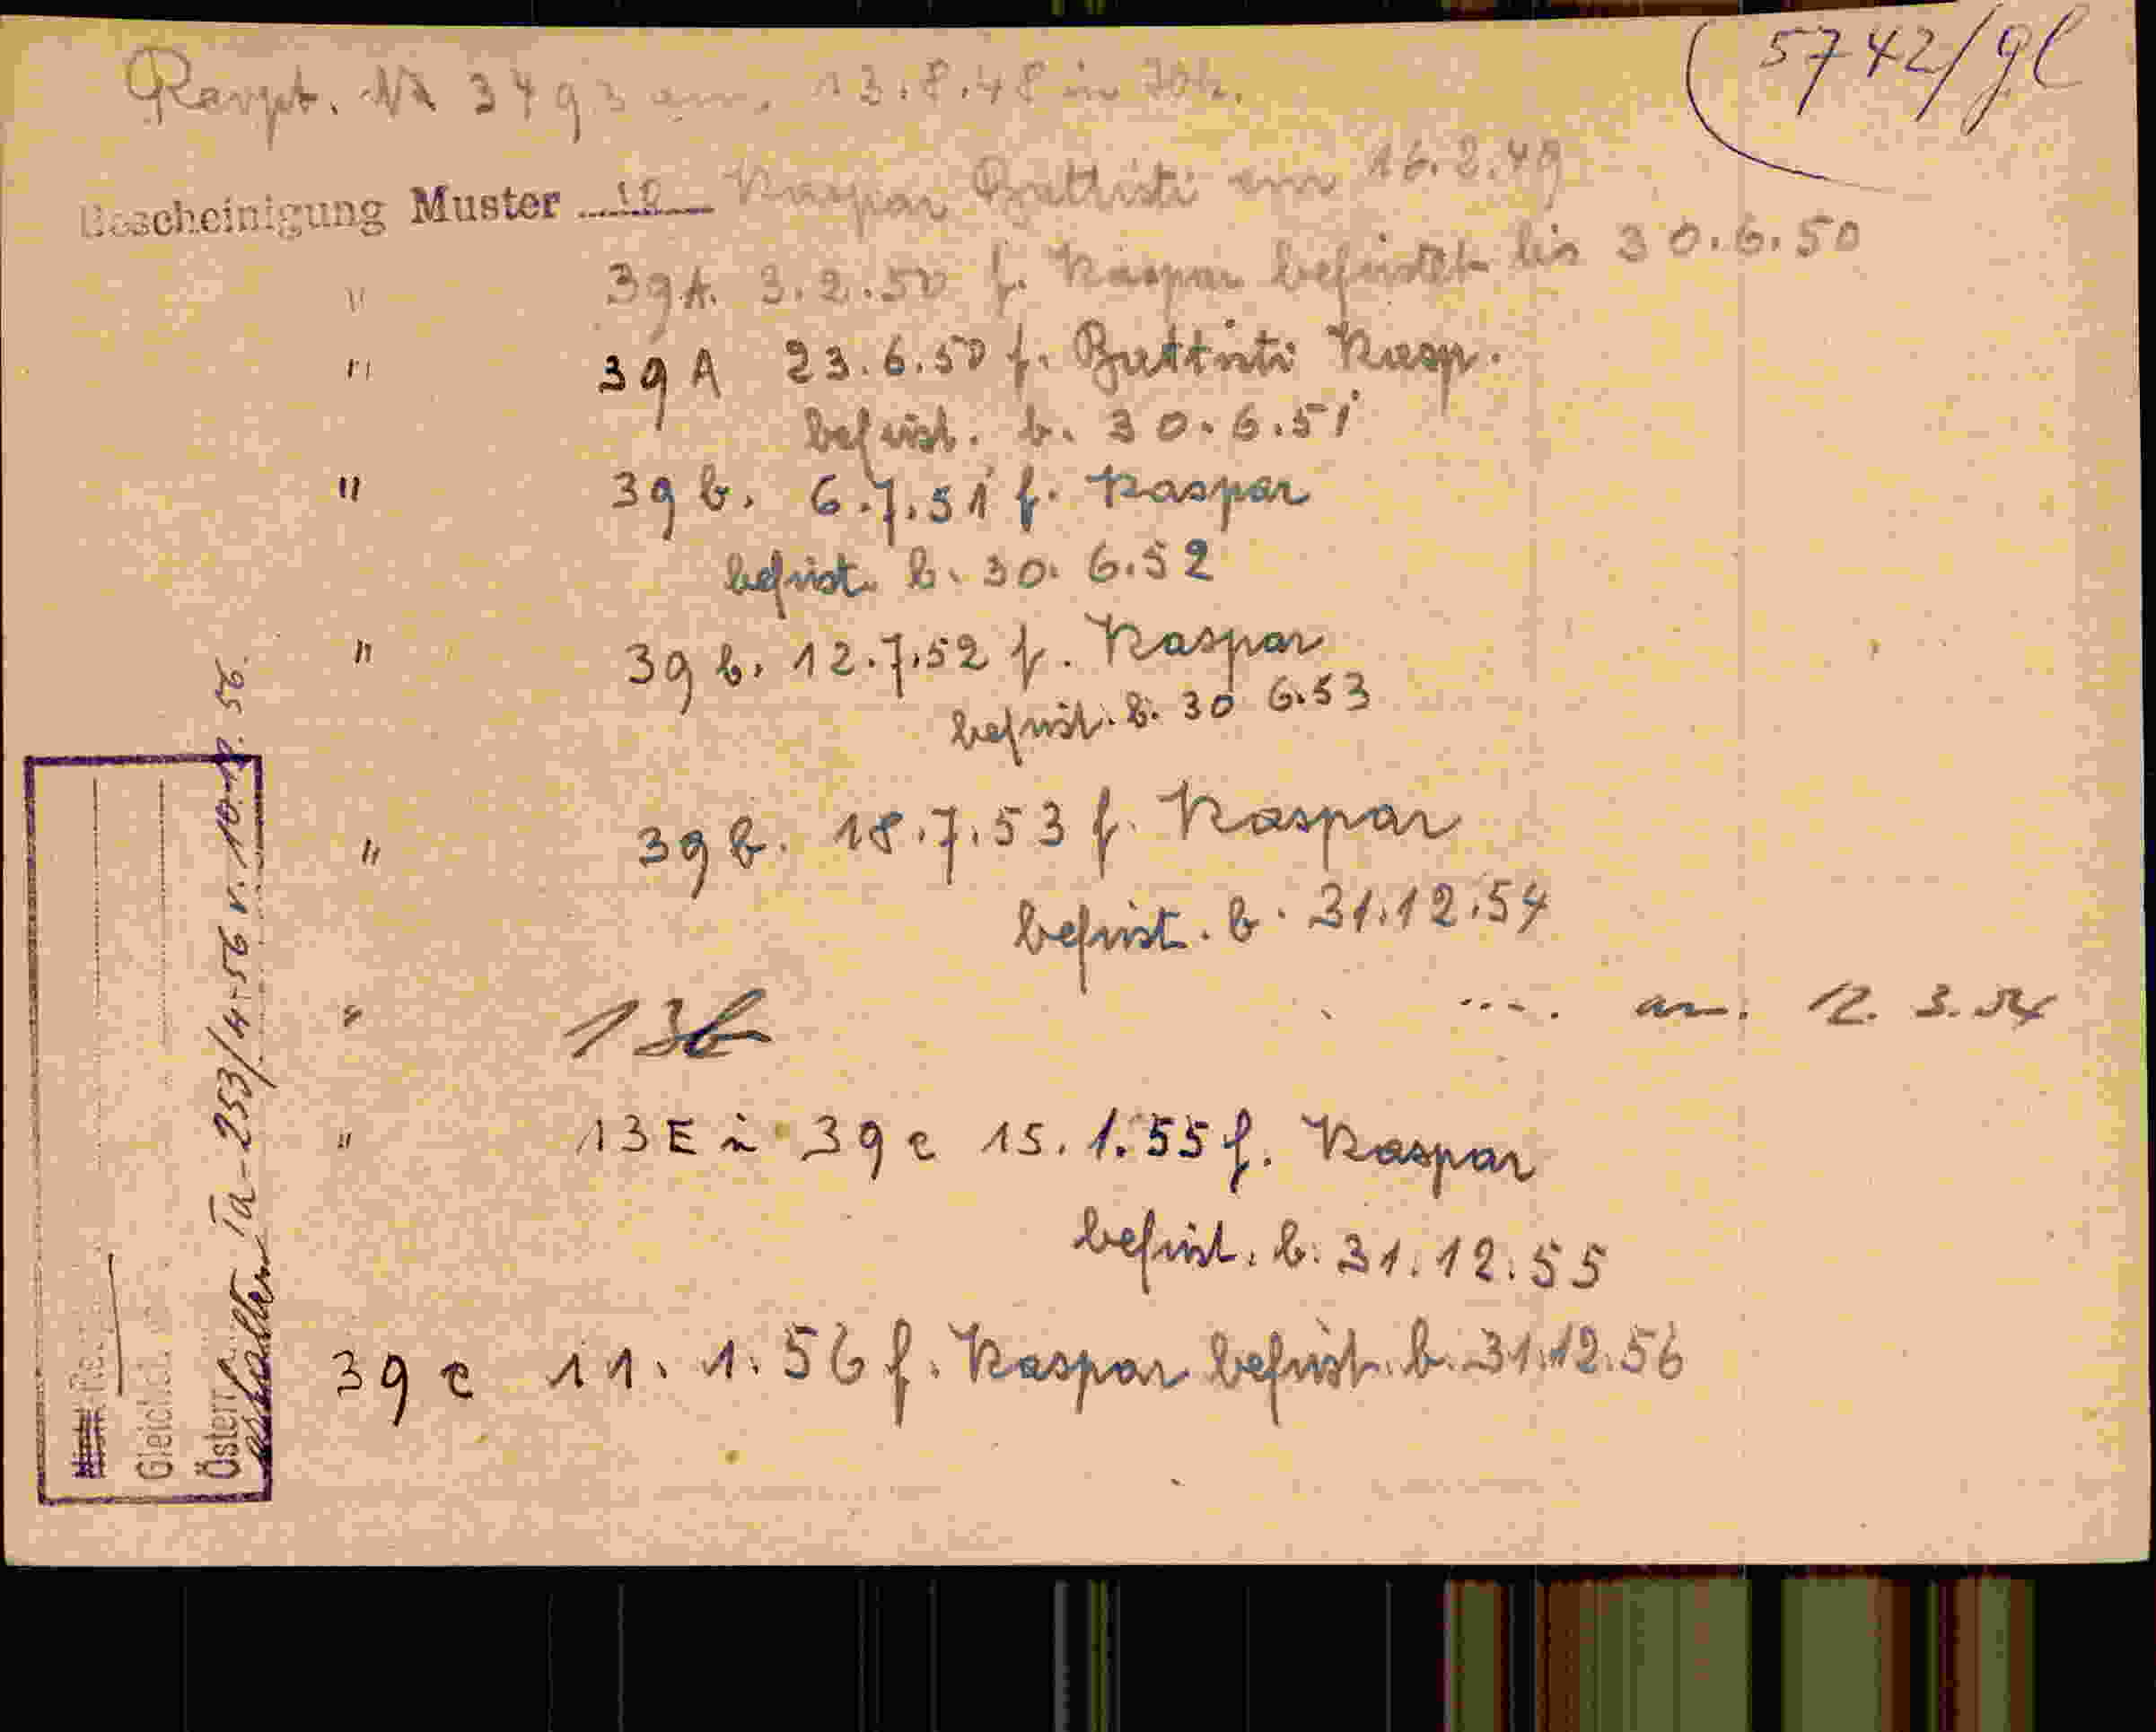 5742/gl
Rempt. Nr 3493 am. 13.8.48 in
Bescheinigung Muster 10 Kaspar Battisti am 16.2.49
" 39A. 3.2.50 f. Kaspar befristet bis 30.6.50
" 39A 23.6.50 f. Battisti Kasp.
befrist. b. 30.6.51
" 39b. 6.7.51 f. Kaspar
befrist. b. 30.6.52
" 39b. 12.7.52 f. Kaspar
befrist. b. 30 6.53
" 39b. 18.7.53 f. Kaspar
befrist. b. 31.12.54
" 13b ... am. 12. 3. 54
" 13E i 39c 15.1.55 f. Kaspar
befrist. b. 31.12.55
39c 11.1.56 f. Kaspar befrist. b. 31.12.56
Gleich
Österr. Ta-253/4-56 v. 56.
erhalten